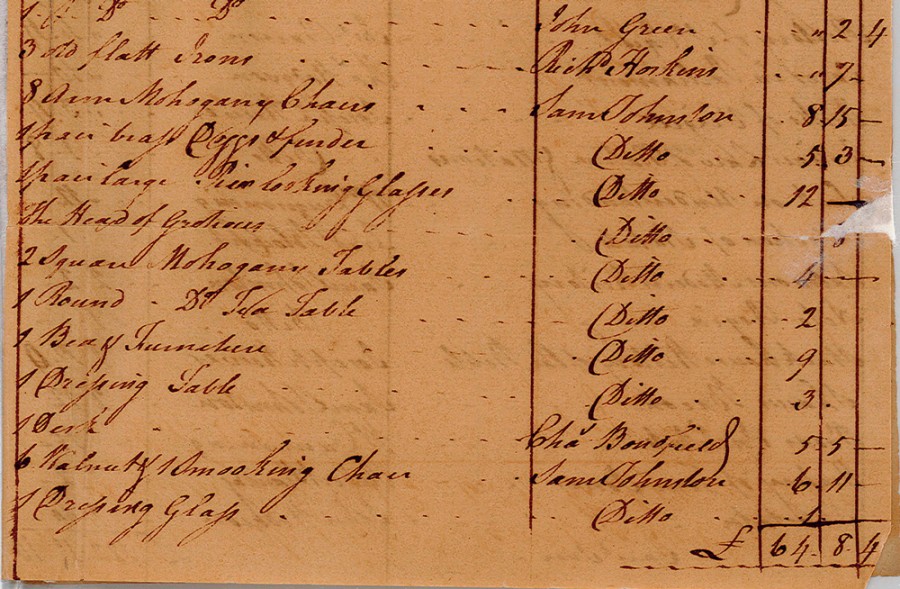 1 Do Do John Green " 2 4
3 old flatt Irons Richd Hoskins " 7 -
8 Arm Mohogany Chairs Sam Johnston 8 15 -
1 pair brass Doggs & fender Ditto 5 3 -
1 pair large Pier looking Glasses Ditto 12 -
The Head of Grotious Ditto 6
2 Square Mohogany Tables Ditto 4 -
1 Round Do Tea Table Ditto 2
1 Bed & Furneture Ditto 9
1 Dressing Table Ditto 3
1 Desk Chas Bondfield 5 5 -
6 Walnut & 1 Smooking Chair Sam Johnston 6 11 -
1 Dressing Glass Ditto 1
£ 64 8 4